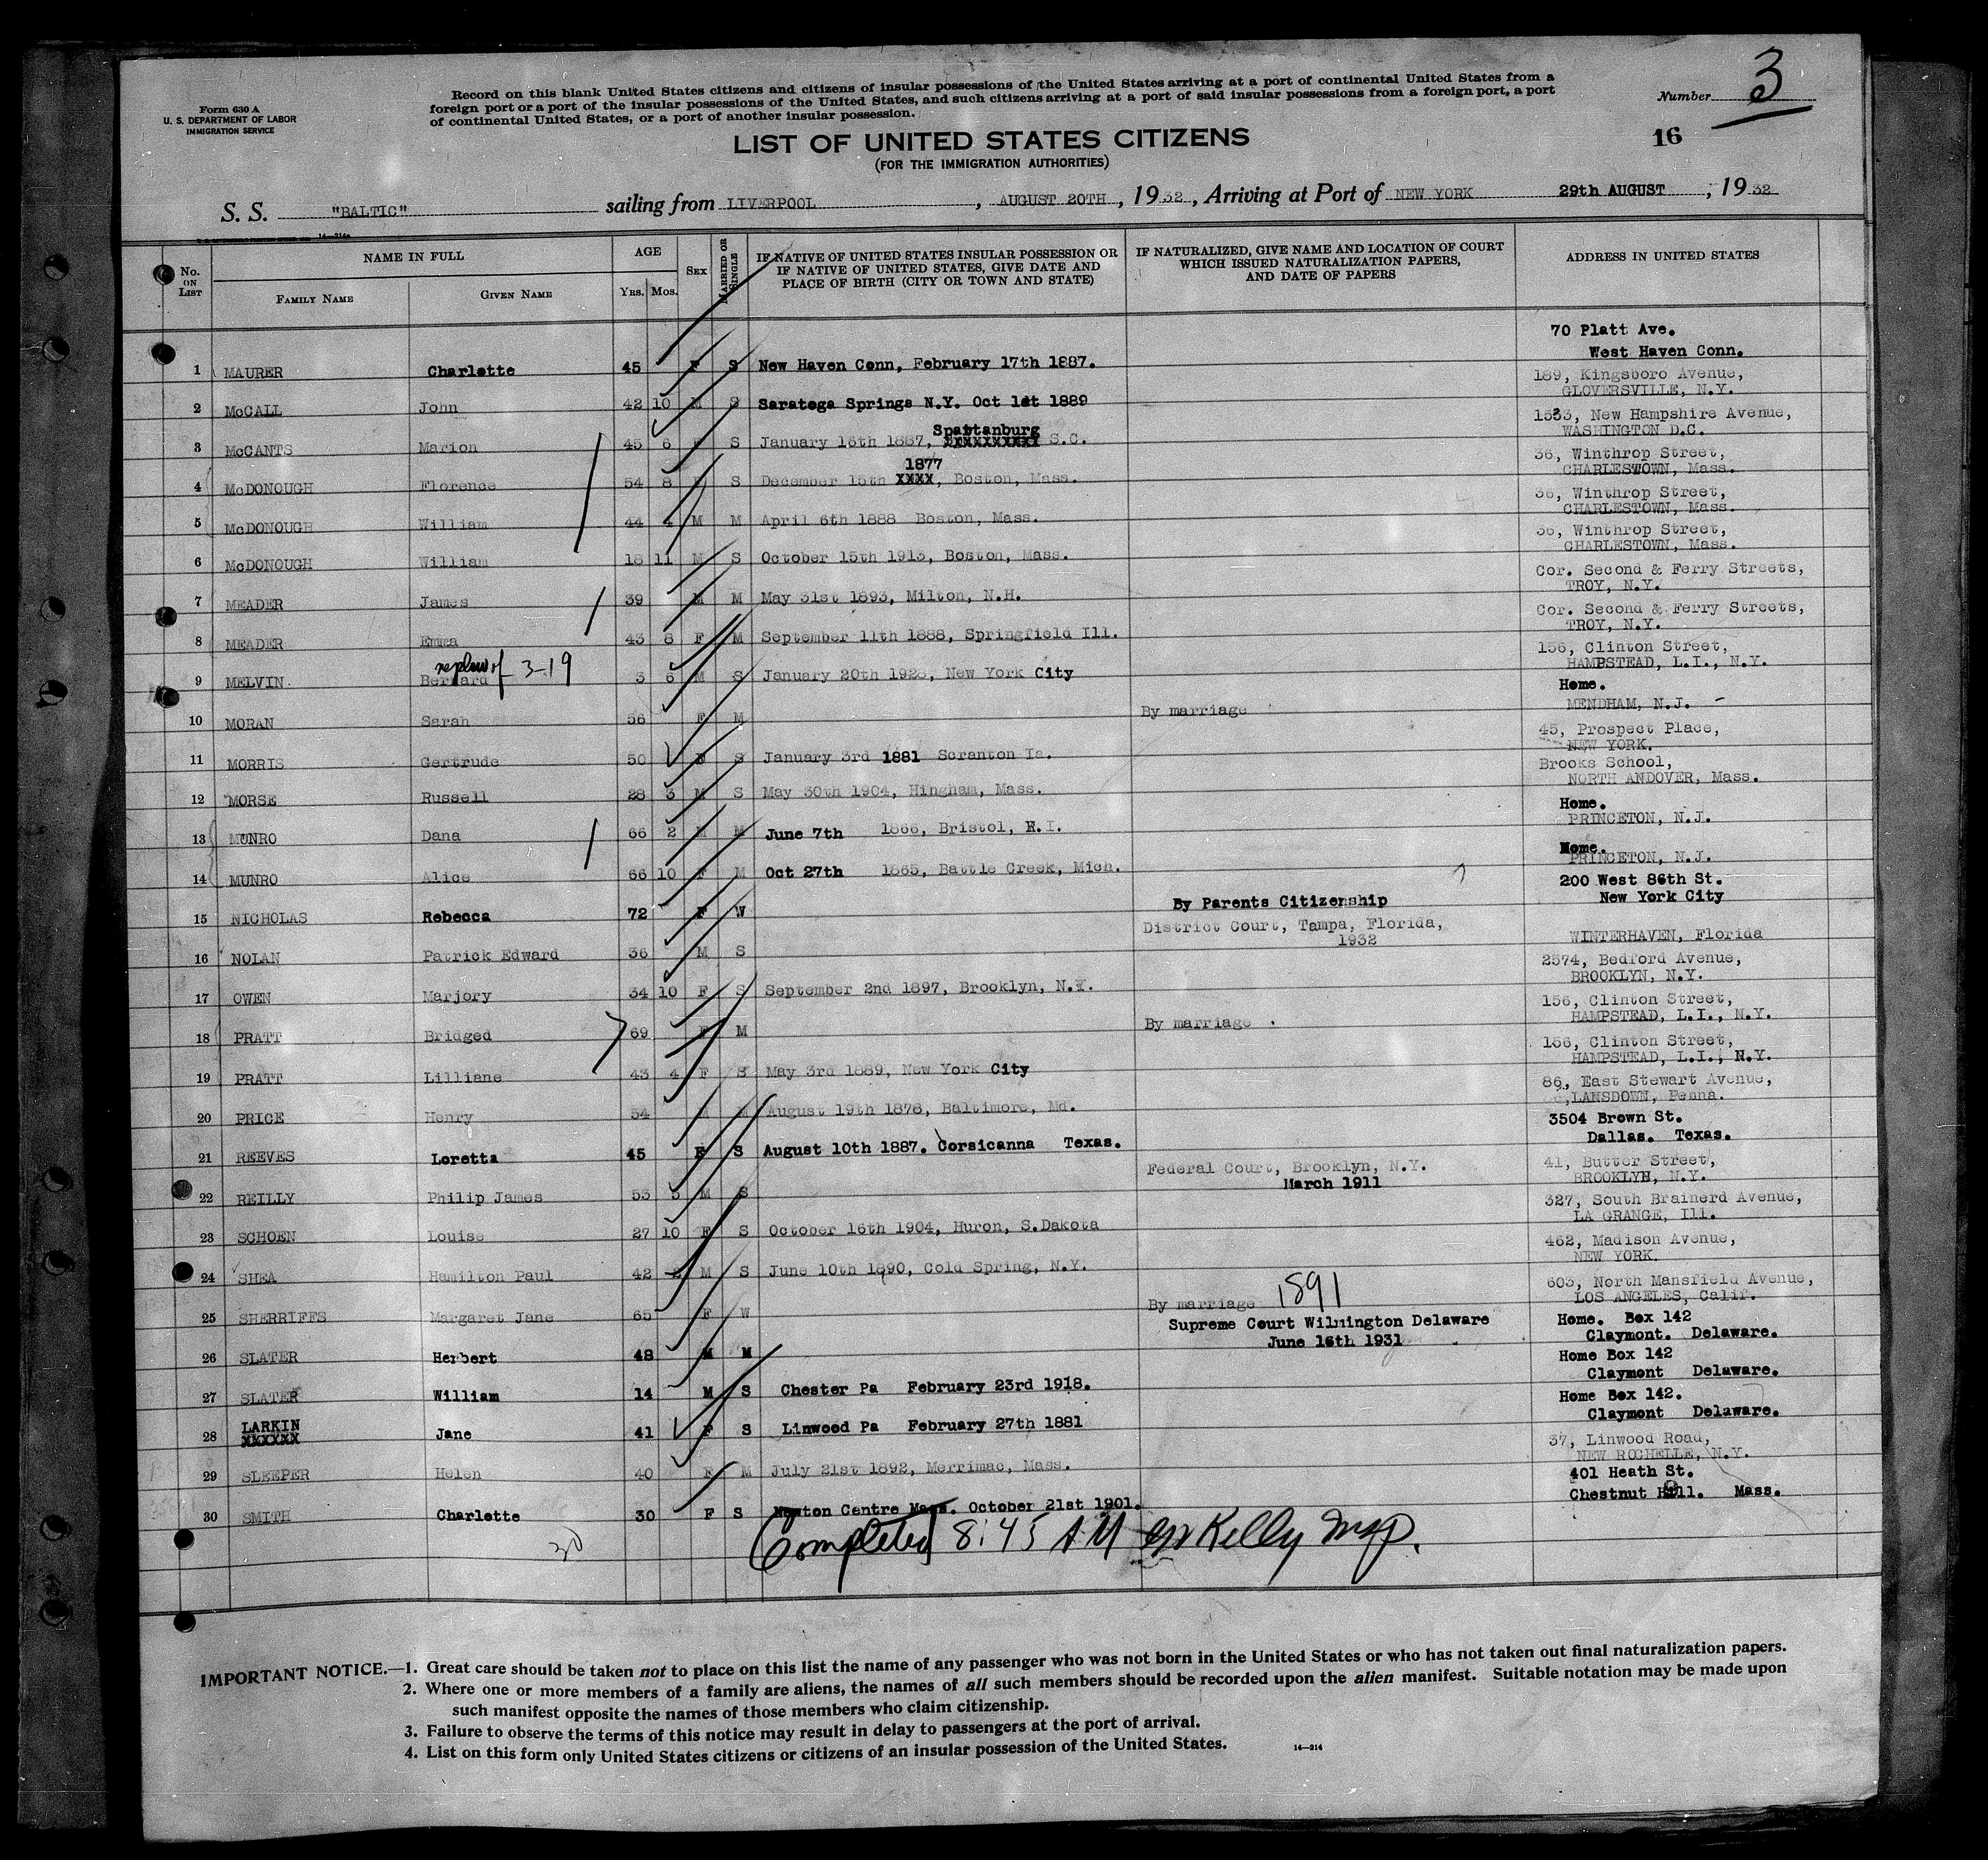 Form 630 A
U. S. DEPARTMENT OF LABOR
IMMIGRATION SERVICE
Record on this blank United States citizens and citizens of insular possessions of the United States arriving at a port of continental United States from a
foreign port or a port of the insular possessions of the United States, and such citizens arriving at a port of said insular possessions from a foreign port, a port
of continental United States, or a port of another insular possession.
Number 3
16
LIST OF UNITED STATES CITIZENS
(FOR THE IMMIGRATION AUTHORITIES)
S. S. "BALTIC" sailing from LIVERPOOL, AUGUST 20TH, 1932, Arriving at Port of NEW YORK 29th AUGUST, 1932
No. ON LIST
NAME IN FULL
FAMILY NAME
GIVEN NAME
AGE
YRS. MOS.
SEX
MARRIED OR SINGLE
IF NATIVE OF UNITED STATES INSULAR POSSESSION OR
IF NATIVE OF UNITED STATES, GIVE DATE AND
PLACE OF BIRTH (CITY OR TOWN AND STATE)
IF NATURALIZED, GIVE NAME AND LOCATION OF COURT
WHICH ISSUED NATURALIZATION PAPERS,
AND DATE OF PAPERS
ADDRESS IN UNITED STATES
70 Platt Ave.
West Haven Conn.
1 MAURER Charlotte 45 F S New Haven Conn, February 17th 1887.
189, Kingsboro Avenue,
GLOVERSVILLE, N.Y.
2 McCALL John 42 10 M S Saratoga Springs N.Y. Oct 1st 1889
1533, New Hampshire Avenue,
WASHINGTON D.C.
Spartanburg
3 McCANTS Marion 45 6 F S January 16th 1887, xxxxxxxxxx S.C.
36, Winthrop Street,
CHARLESTOWN, Mass.
1877
4 McDONOUGH Florence 54 8 F S December 15th XXXX, Boston, Mass.
36, Winthrop Street,
CHARLESTOWN, Mass.
5 McDONOUGH William 44 4 M M April 6th 1888 Boston, Mass.
36, Winthrop Street,
CHARLESTOWN, Mass.
6 McDONOUGH William 18 11 M S October 15th 1913, Boston, Mass.
Cor. Second & Ferry Streets,
TROY, N.Y.
7 MEADER James 39 M M May 31st 1893, Milton, N.H.
Cor. Second & Ferry Streets,
TROY, N.Y.
8 MEADER Emma 43 8 F M September 11th 1888, Springfield Ill.
nephew of 3-19
156, Clinton Street,
HAMPSTEAD, L.I., N.Y.
9 MELVIN Bernard 3 6 M S January 20th 1928, New York City
Home.
MENDHAM, N.J.
10 MORAN Sarah 56 F M By marriage
45, Prospect Place,
NEW YORK.
11 MORRIS Gertrude 50 F S January 3rd 1881 Scranton Ia.
Brooks School,
NORTH ANDOVER, Mass.
12 MORSE Russell 28 3 M S May 30th 1904, Hingham, Mass.
Home.
PRINCETON, N.J.
13 MUNRO Dana 66 2 M M June 7th 1866, Bristol, R.I.
Home.
PRINCETON, N.J.
14 MUNRO Alice 66 10 F M Oct 27th 1865, Battle Creek, Mich.
200 West 86th St.
New York City
15 NICHOLAS Rebecca 72 F W By Parents Citizenship
District Court, Tampa, Florida,
1932
WINTERHAVEN, Florida
16 NOLAN Patrick Edward 36 M S
2574, Bedford Avenue,
BROOKLYN, N.Y.
17 OWEN Marjory 34 10 F S September 2nd 1897, Brooklyn, N.Y.
156, Clinton Street,
HAMPSTEAD, L.I., N.Y.
18 PRATT Bridged 69 F M By marriage
156, Clinton Street,
HAMPSTEAD, L.I., N.Y.
19 PRATT Lilliane 43 4 F S May 3rd 1889, New York City
86, East Stewart Avenue,
LANSDOWN, Penna.
20 PRICE Henry 54 M M August 19th 1878, Baltimore, Md.
3504 Brown St.
Dallas. Texas.
21 REEVES Loretta 45 F S August 10th 1887. Corsicanna Texas.
Federal Court, Brooklyn, N.Y.
March 1911
41, Butter Street,
BROOKLYN, N.Y.
22 REILLY Philip James 53 5 M S
327, South Brainerd Avenue,
LA GRANGE, Ill.
23 SCHOEN Louise 27 10 F S October 16th 1904, Huron, S.Dakota
462, Madison Avenue,
NEW YORK.
24 SHEA Hamilton Paul 42 2 M S June 10th 1890, Cold Spring, N.Y.
603, North Mansfield Avenue,
LOS ANGELES, Calif.
25 SHERRIFFS Margaret Jane 65 F W By marriage 1891
Supreme Court Wilmington Delaware
June 16th 1931
Home. Box 142
Claymont. Delaware.
26 SLATER Herbert 48 M M
Home Box 142
Claymont Delaware.
27 SLATER William 14 M S Chester Pa February 23rd 1918.
Home Box 142.
Claymont Delaware.
LARKIN
28 XXXXXX Jane 41 F S Linwood Pa February 27th 1881
37, Linwood Road,
NEW ROCHELLE, N.Y.
29 SLEEPER Helen 40 F M July 21st 1892, Merrimac, Mass.
401 Heath St.
Chestnut Hill. Mass.
30 SMITH Charlotte 30 F S Newton Centre Mass. October 21st 1901.
30
Completed 8:45 AM Kelly Insp.
IMPORTANT NOTICE.—1. Great care should be taken not to place on this list the name of any passenger who was not born in the United States or who has not taken out final naturalization papers.
2. Where one or more members of a family are aliens, the names of all such members should be recorded upon the alien manifest. Suitable notation may be made upon
such manifest opposite the names of those members who claim citizenship.
3. Failure to observe the terms of this notice may result in delay to passengers at the port of arrival.
4. List on this form only United States citizens or citizens of an insular possession of the United States.
14—214